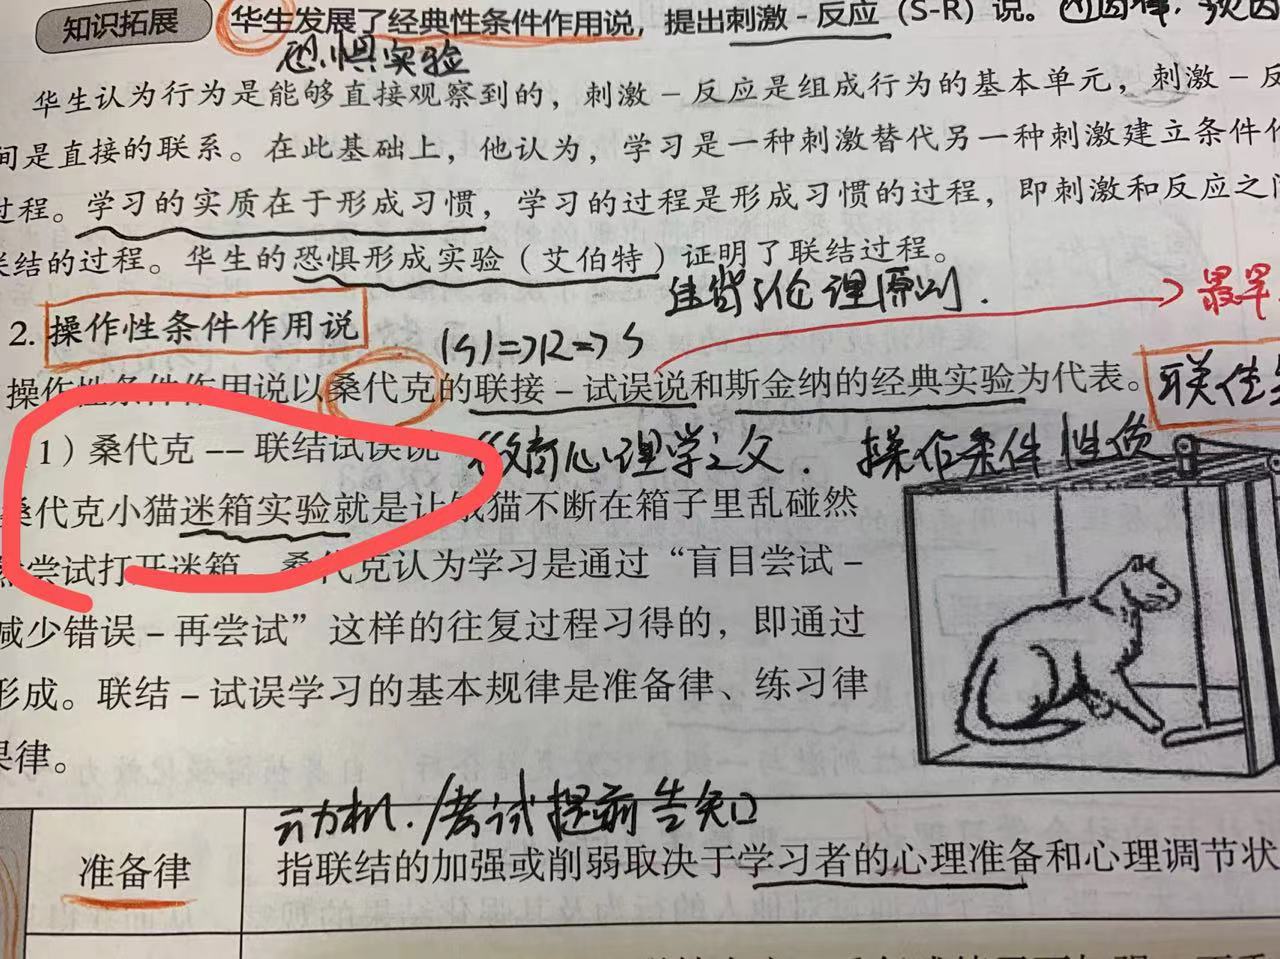 知识拓展 华生发展了经典性条件作用说，提出刺激－反应（S-R）说。
恐惧实验
华生认为行为是能够直接观察到的，刺激－反应是组成行为的基本单元，刺激－反
间是直接的联系。在此基础上，他认为，学习是一种刺激替代另一种刺激建立条件作
过程。学习的实质在于形成习惯，学习的过程是形成习惯的过程，即刺激和反应之间
联结的过程。华生的恐惧形成实验（艾伯特）证明了联结过程。
违背了伦理原则．
最早
2. 操作性条件作用说
(S)=>R=>S
操作性条件作用说以桑代克的联接－试误说和斯金纳的经典实验为代表。
1）桑代克 -- 联结试误说
教育心理学之父． 操作条件性质
桑代克小猫迷箱实验就是让饿猫不断在箱子里乱碰然
尝试打开迷箱。桑代克认为学习是通过“盲目尝试－
减少错误－再尝试”这样的往复过程习得的，即通过
形成。联结－试误学习的基本规律是准备律、练习律
果律。
动机．/考试提前告知
准备律 指联结的加强或削弱取决于学习者的心理准备和心理调节状